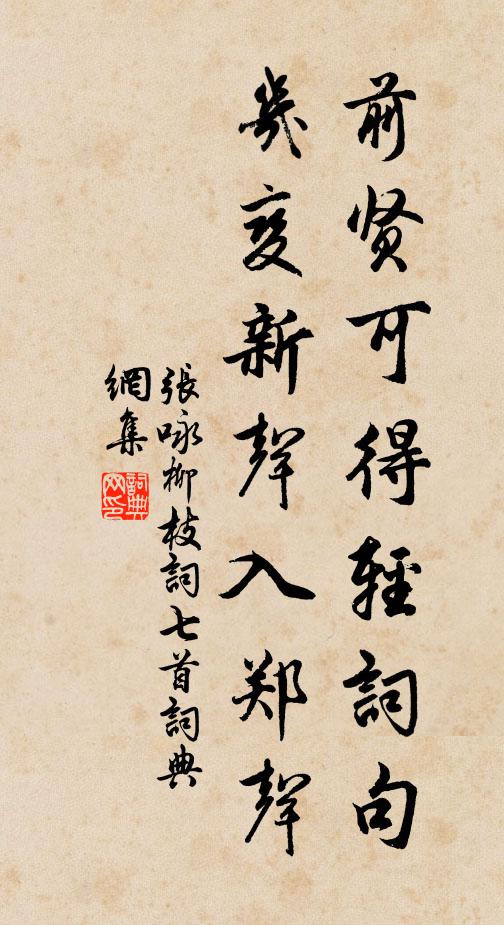 前贤可得輕詞句
幾变新聲入郑聲
張咏柳枝詞七首詞典
網集
詞典
网印